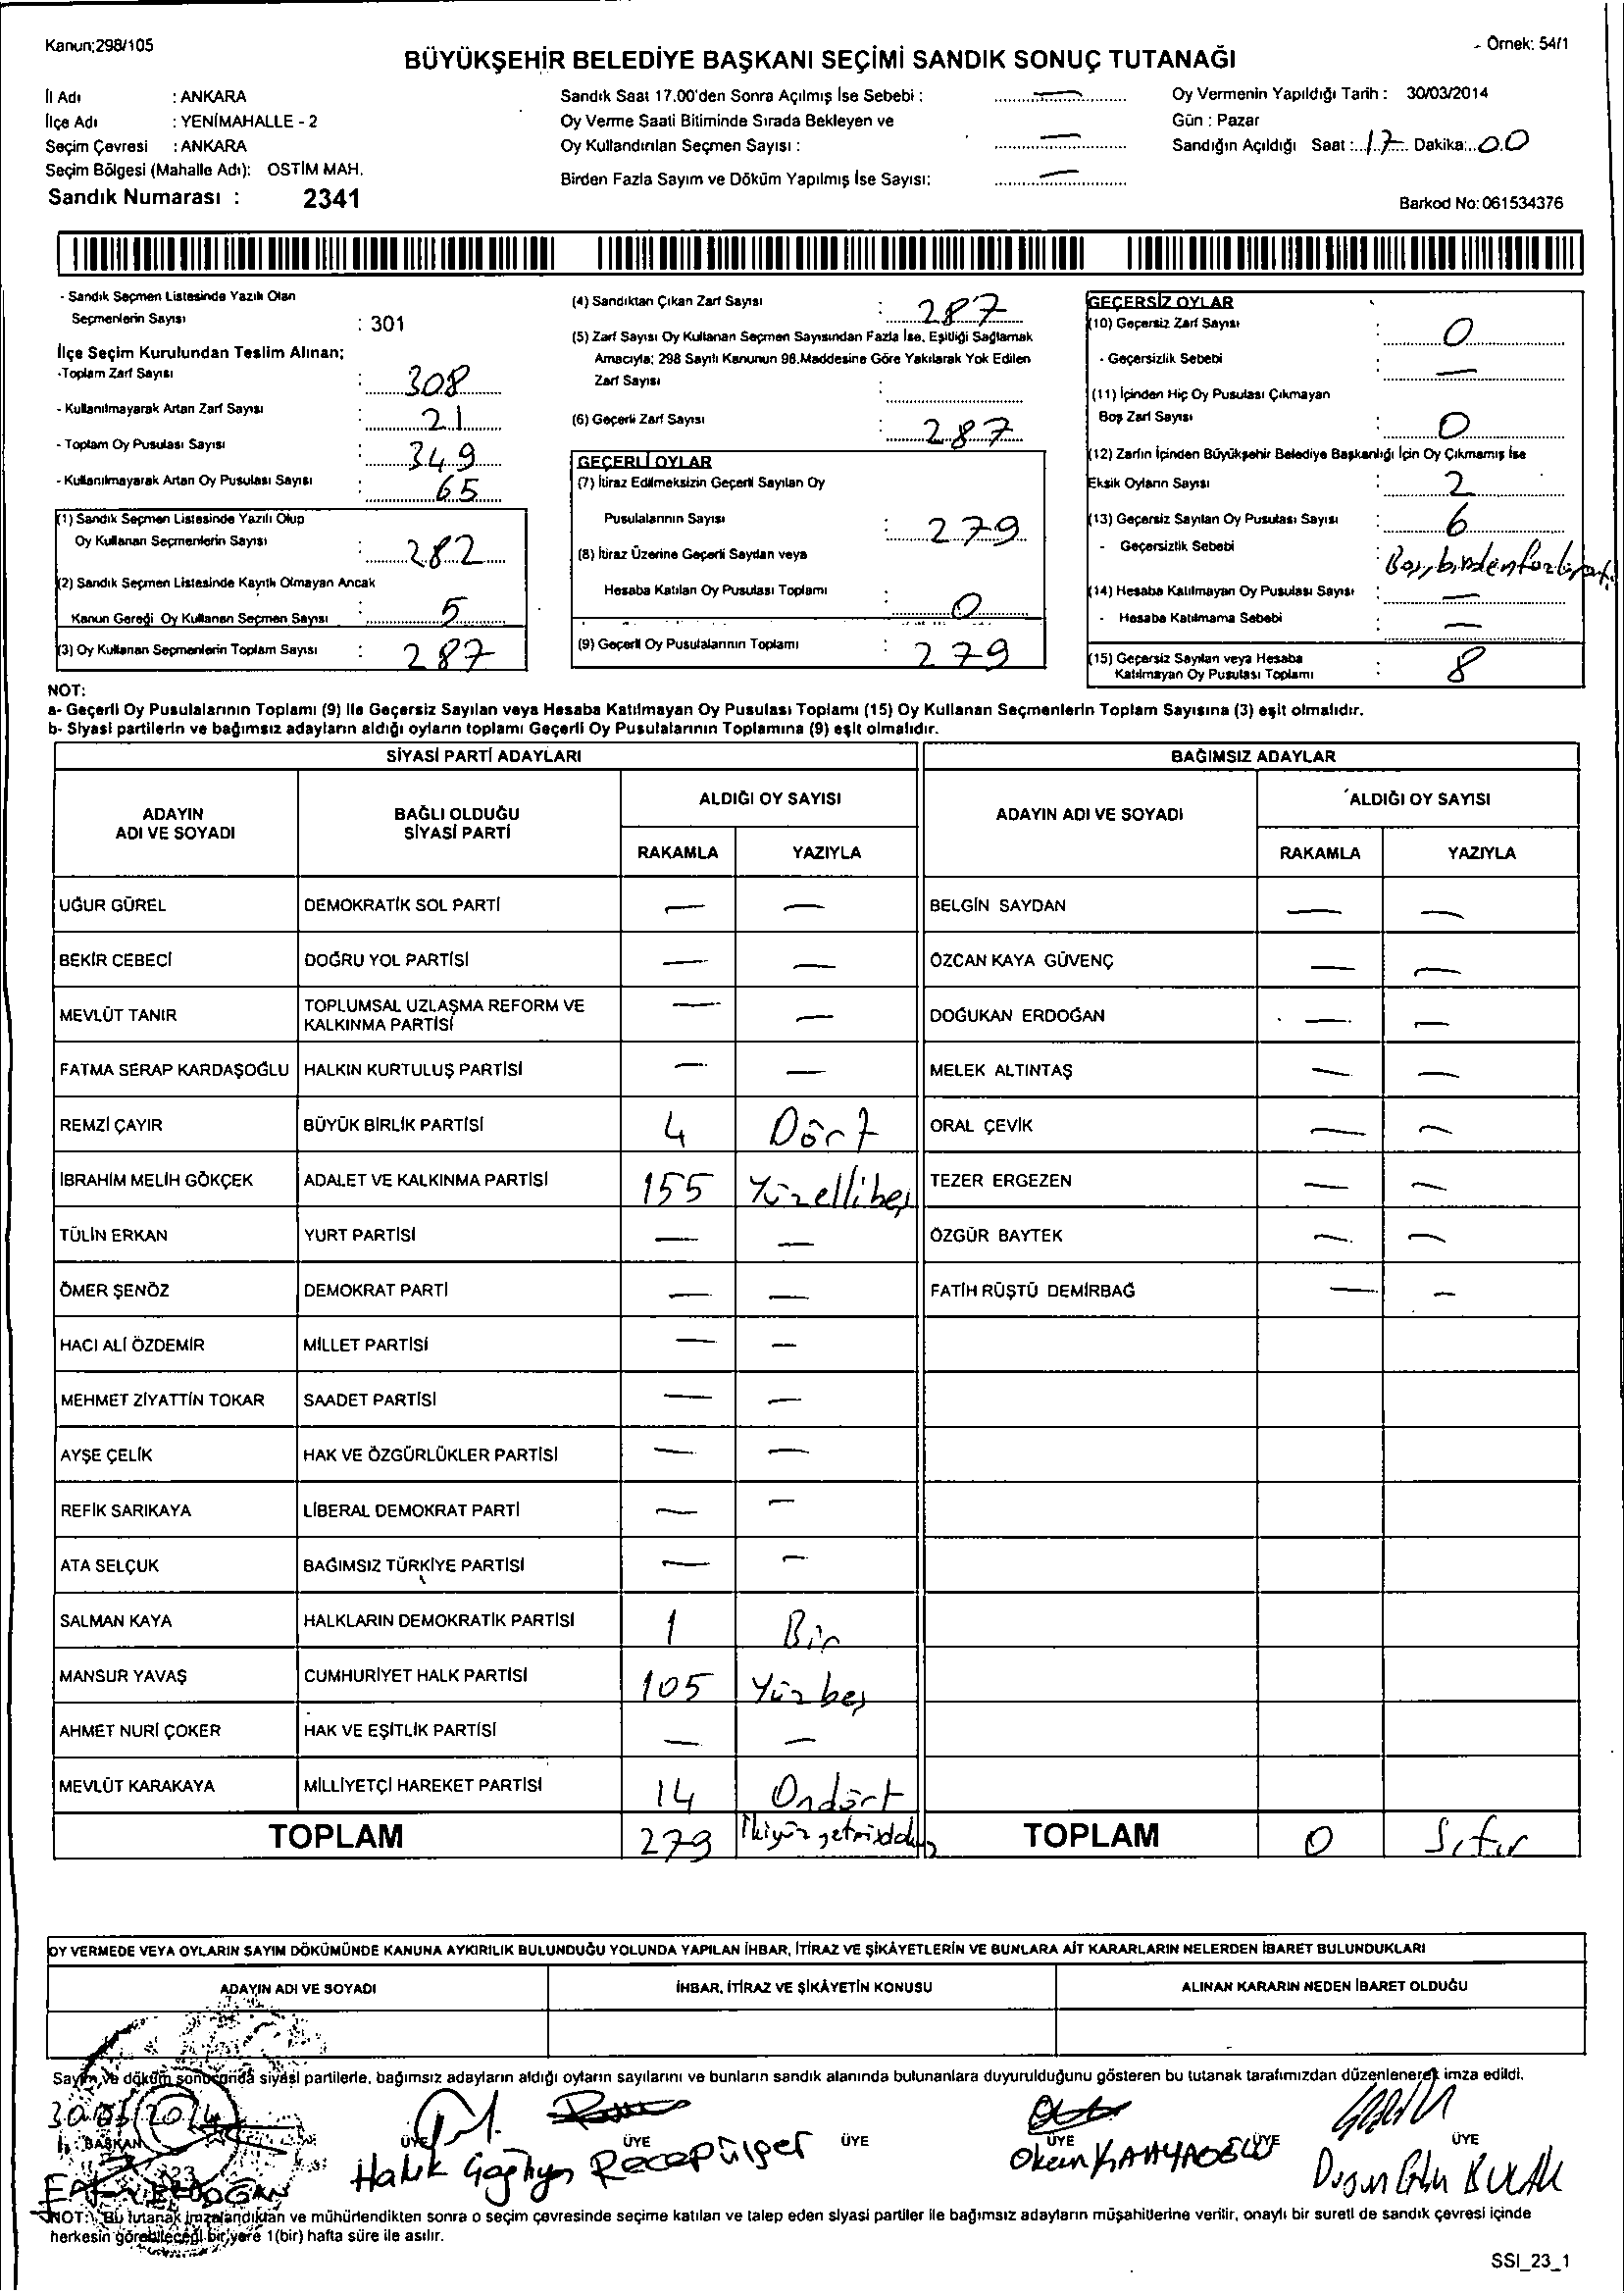 Kanun;298/105
Örnek: 54/1
BÜYÜKŞEHİR BELEDİYE BAŞKANI SEÇİMİ SANDIK SONUÇ TUTANAĞI
İl Adı : ANKARA
İlçe Adı : YENİMAHALLE - 2
Seçim Çevresi : ANKARA
Seçim Bölgesi (Mahalle Adı): OSTİM MAH.
Sandık Numarası : 2341
Sandık Saat 17.00'den Sonra Açılmış İse Sebebi : —
Oy Verme Saati Bitiminde Sırada Bekleyen ve
Oy Kullandırılan Seçmen Sayısı : —
Birden Fazla Sayım ve Döküm Yapılmış İse Sayısı: —
Oy Vermenin Yapıldığı Tarih : 30/03/2014
Gün : Pazar
Sandığın Açıldığı Saat : 17 Dakika: 00
Barkod No: 061534376
- Sandık Seçmen Listesinde Yazılı Olan
Seçmenlerin Sayısı : 301
İlçe Seçim Kurulundan Teslim Alınan;
-Toplam Zarf Sayısı : 308
- Kullanılmayarak Artan Zarf Sayısı : 21
- Toplam Oy Pusulası Sayısı : 349
- Kullanılmayarak Artan Oy Pusulası Sayısı : 65
(1) Sandık Seçmen Listesinde Yazılı Olup
Oy Kullanan Seçmenlerin Sayısı : 282
(2) Sandık Seçmen Listesinde Kayıtlı Olmayan Ancak
Kanun Gereği Oy Kullanan Seçmen Sayısı : 5
(3) Oy Kullanan Seçmenlerin Toplam Sayısı : 287
(4) Sandıktan Çıkan Zarf Sayısı : 287
(5) Zarf Sayısı Oy Kullanan Seçmen Sayısından Fazla İse, Eşitliği Sağlamak
Amacıyla; 298 Sayılı Kanunun 98.Maddesine Göre Yakılarak Yok Edilen
Zarf Sayısı :
(6) Geçerli Zarf Sayısı : 287
GEÇERLİ OYLAR
(7) İtiraz Edilmeksizin Geçerli Sayılan Oy
Pusulalarının Sayısı : 279
(8) İtiraz Üzerine Geçerli Sayılan veya
Hesaba Katılan Oy Pusulası Toplamı : 0
(9) Geçerli Oy Pusulalarının Toplamı : 279
GEÇERSİZ OYLAR
(10) Geçersiz Zarf Sayısı : 0
- Geçersizlik Sebebi : —
(11) İçinden Hiç Oy Pusulası Çıkmayan
Boş Zarf Sayısı : 0
(12) Zarfın İçinden Büyükşehir Belediye Başkanlığı İçin Oy Çıkmamış İse
Eksik Oyların Sayısı : 2
(13) Geçersiz Sayılan Oy Pusulası Sayısı : 6
- Geçersizlik Sebebi :
(14) Hesaba Katılmayan Oy Pusulası Sayısı : —
- Hesaba Katılmama Sebebi : —
(15) Geçersiz Sayılan veya Hesaba
Katılmayan Oy Pusulası Toplamı : 8
NOT:
a- Geçerli Oy Pusulalarının Toplamı (9) ile Geçersiz Sayılan veya Hesaba Katılmayan Oy Pusulası Toplamı (15) Oy Kullanan Seçmenlerin Toplam Sayısına (3) eşit olmalıdır.
b- Siyasi partilerin ve bağımsız adayların aldığı oyların toplamı Geçerli Oy Pusulalarının Toplamına (9) eşit olmalıdır.
SİYASİ PARTİ ADAYLARI
ADAYIN ADI VE SOYADI
BAĞLI OLDUĞU SİYASİ PARTİ
ALDIĞI OY SAYISI
RAKAMLA YAZIYLA
UĞUR GÜREL DEMOKRATİK SOL PARTİ — —
BEKİR CEBECİ DOĞRU YOL PARTİSİ — —
MEVLÜT TANIR TOPLUMSAL UZLAŞMA REFORM VE KALKINMA PARTİSİ — —
FATMA SERAP KARDAŞOĞLU HALKIN KURTULUŞ PARTİSİ — —
REMZİ ÇAYIR BÜYÜK BİRLİK PARTİSİ 4 Dört
İBRAHİM MELİH GÖKÇEK ADALET VE KALKINMA PARTİSİ 155 Yüzellibeş
TÜLİN ERKAN YURT PARTİSİ — —
ÖMER ŞENÖZ DEMOKRAT PARTİ — —
HACI ALİ ÖZDEMİR MİLLET PARTİSİ — —
MEHMET ZİYATTİN TOKAR SAADET PARTİSİ — —
AYŞE ÇELİK HAK VE ÖZGÜRLÜKLER PARTİSİ — —
REFİK SARIKAYA LİBERAL DEMOKRAT PARTİ — —
ATA SELÇUK BAĞIMSIZ TÜRKİYE PARTİSİ — —
SALMAN KAYA HALKLARIN DEMOKRATİK PARTİSİ 1 Bir
MANSUR YAVAŞ CUMHURİYET HALK PARTİSİ 105 Yüzbeş
AHMET NURİ ÇOKER HAK VE EŞİTLİK PARTİSİ — —
MEVLÜT KARAKAYA MİLLİYETÇİ HAREKET PARTİSİ 14 Ondört
TOPLAM 279 İkiyüzyetmişdokuz
BAĞIMSIZ ADAYLAR
ADAYIN ADI VE SOYADI
ALDIĞI OY SAYISI
RAKAMLA YAZIYLA
BELGİN SAYDAN — —
ÖZCAN KAYA GÜVENÇ — —
DOĞUKAN ERDOĞAN — —
MELEK ALTINTAŞ — —
ORAL ÇEVİK — —
TEZER ERGEZEN — —
ÖZGÜR BAYTEK — —
FATİH RÜŞTÜ DEMİRBAĞ — —
TOPLAM 0 Sıfır
OY VERMEDE VEYA OYLARIN SAYIM DÖKÜMÜNDE KANUNA AYKIRILIK BULUNDUĞU YOLUNDA YAPILAN İHBAR, İTİRAZ VE ŞİKÂYETLERİN VE BUNLARA AİT KARARLARIN NELERDEN İBARET BULUNDUKLARI
ADAYIN ADI VE SOYADI
İHBAR, İTİRAZ VE ŞİKÂYETİN KONUSU
ALINAN KARARIN NEDEN İBARET OLDUĞU
Sayım ve döküm sonucunda siyasi partilerle, bağımsız adayların aldığı oyların sayılarını ve bunların sandık alanında bulunanlara duyurulduğunu gösteren bu tutanak tarafımızdan düzenlenerek imza edildi.
30/03/2014
BAŞKAN ÜYE ÜYE ÜYE ÜYE ÜYE ÜYE
Recep Ülger
Okan KAHYAOĞLU
NOT: Bu tutanak imzalandıktan ve mühürlendikten sonra o seçim çevresinde seçime katılan ve talep eden siyasi partiler ile bağımsız adayların müşahitlerine verilir, onaylı bir sureti de sandık çevresi içinde
herkesin görebileceği bir yere 1(bir) hafta süre ile asılır.
SSI_23_1